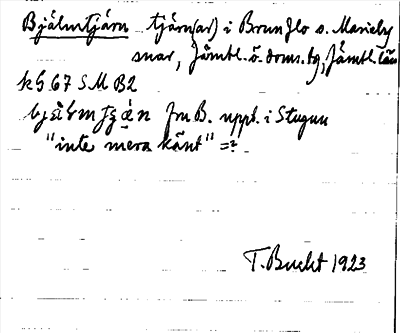 Bjälmtjärn tjärn(ar) i Brunflo s. Marieby
snar, Jämtl. ö. doms. tg, Jämtl. län
k5 67 SM B2
fr. B. uppt. i Stugun
"inte mera känt" =?
T. Bucht 1923